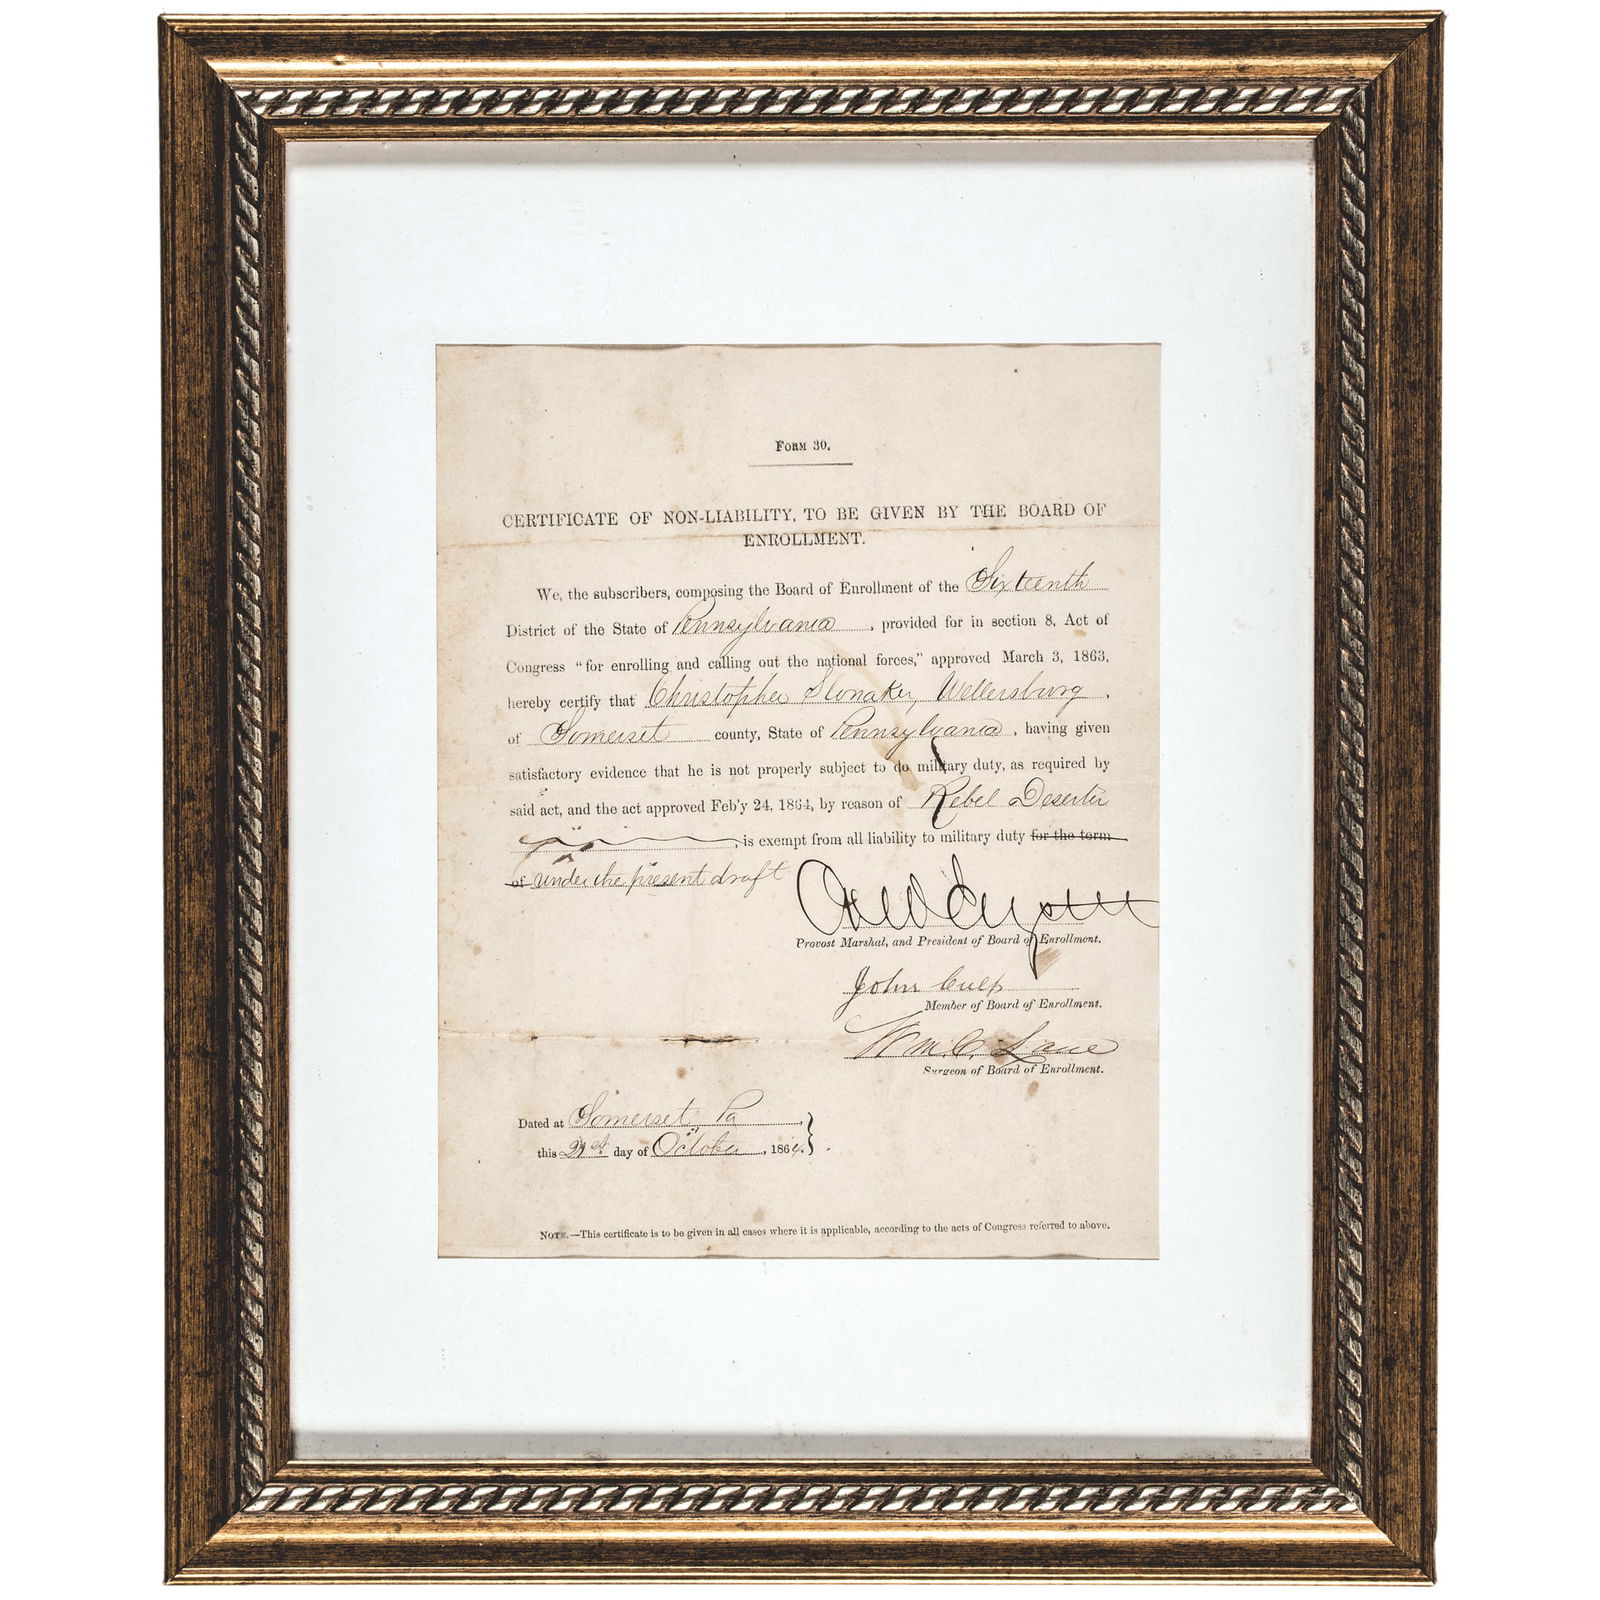 FORM 30.
CERTIFICATE OF NON-LIABILITY, TO BE GIVEN BY THE BOARD OF
ENROLLMENT.
We, the subscribers, composing the Board of Enrollment of the Sixteenth
District of the State of Pennsylvania, provided for in section 8, Act of
Congress "for enrolling and calling out the national forces," approved March 3, 1863,
hereby certify that Christopher Slonaker, Wellersburg,
of Somerset county, State of Pennsylvania, having given
satisfactory evidence that he is not properly subject to do military duty, as required by
said act, and the act approved Feb'y 24, 1864, by reason of Rebel Deserter
, is exempt from all liability to military duty for the term
of under the present draft
Provost Marshal, and President of Board of Enrollment.
John Culp
Member of Board of Enrollment.
Wm. C. Lane
Surgeon of Board of Enrollment.
Dated at Somerset, Pa
this 21st day of October, 1864.
NOTE.—This certificate is to be given in all cases where it is applicable, according to the acts of Congress referred to above.